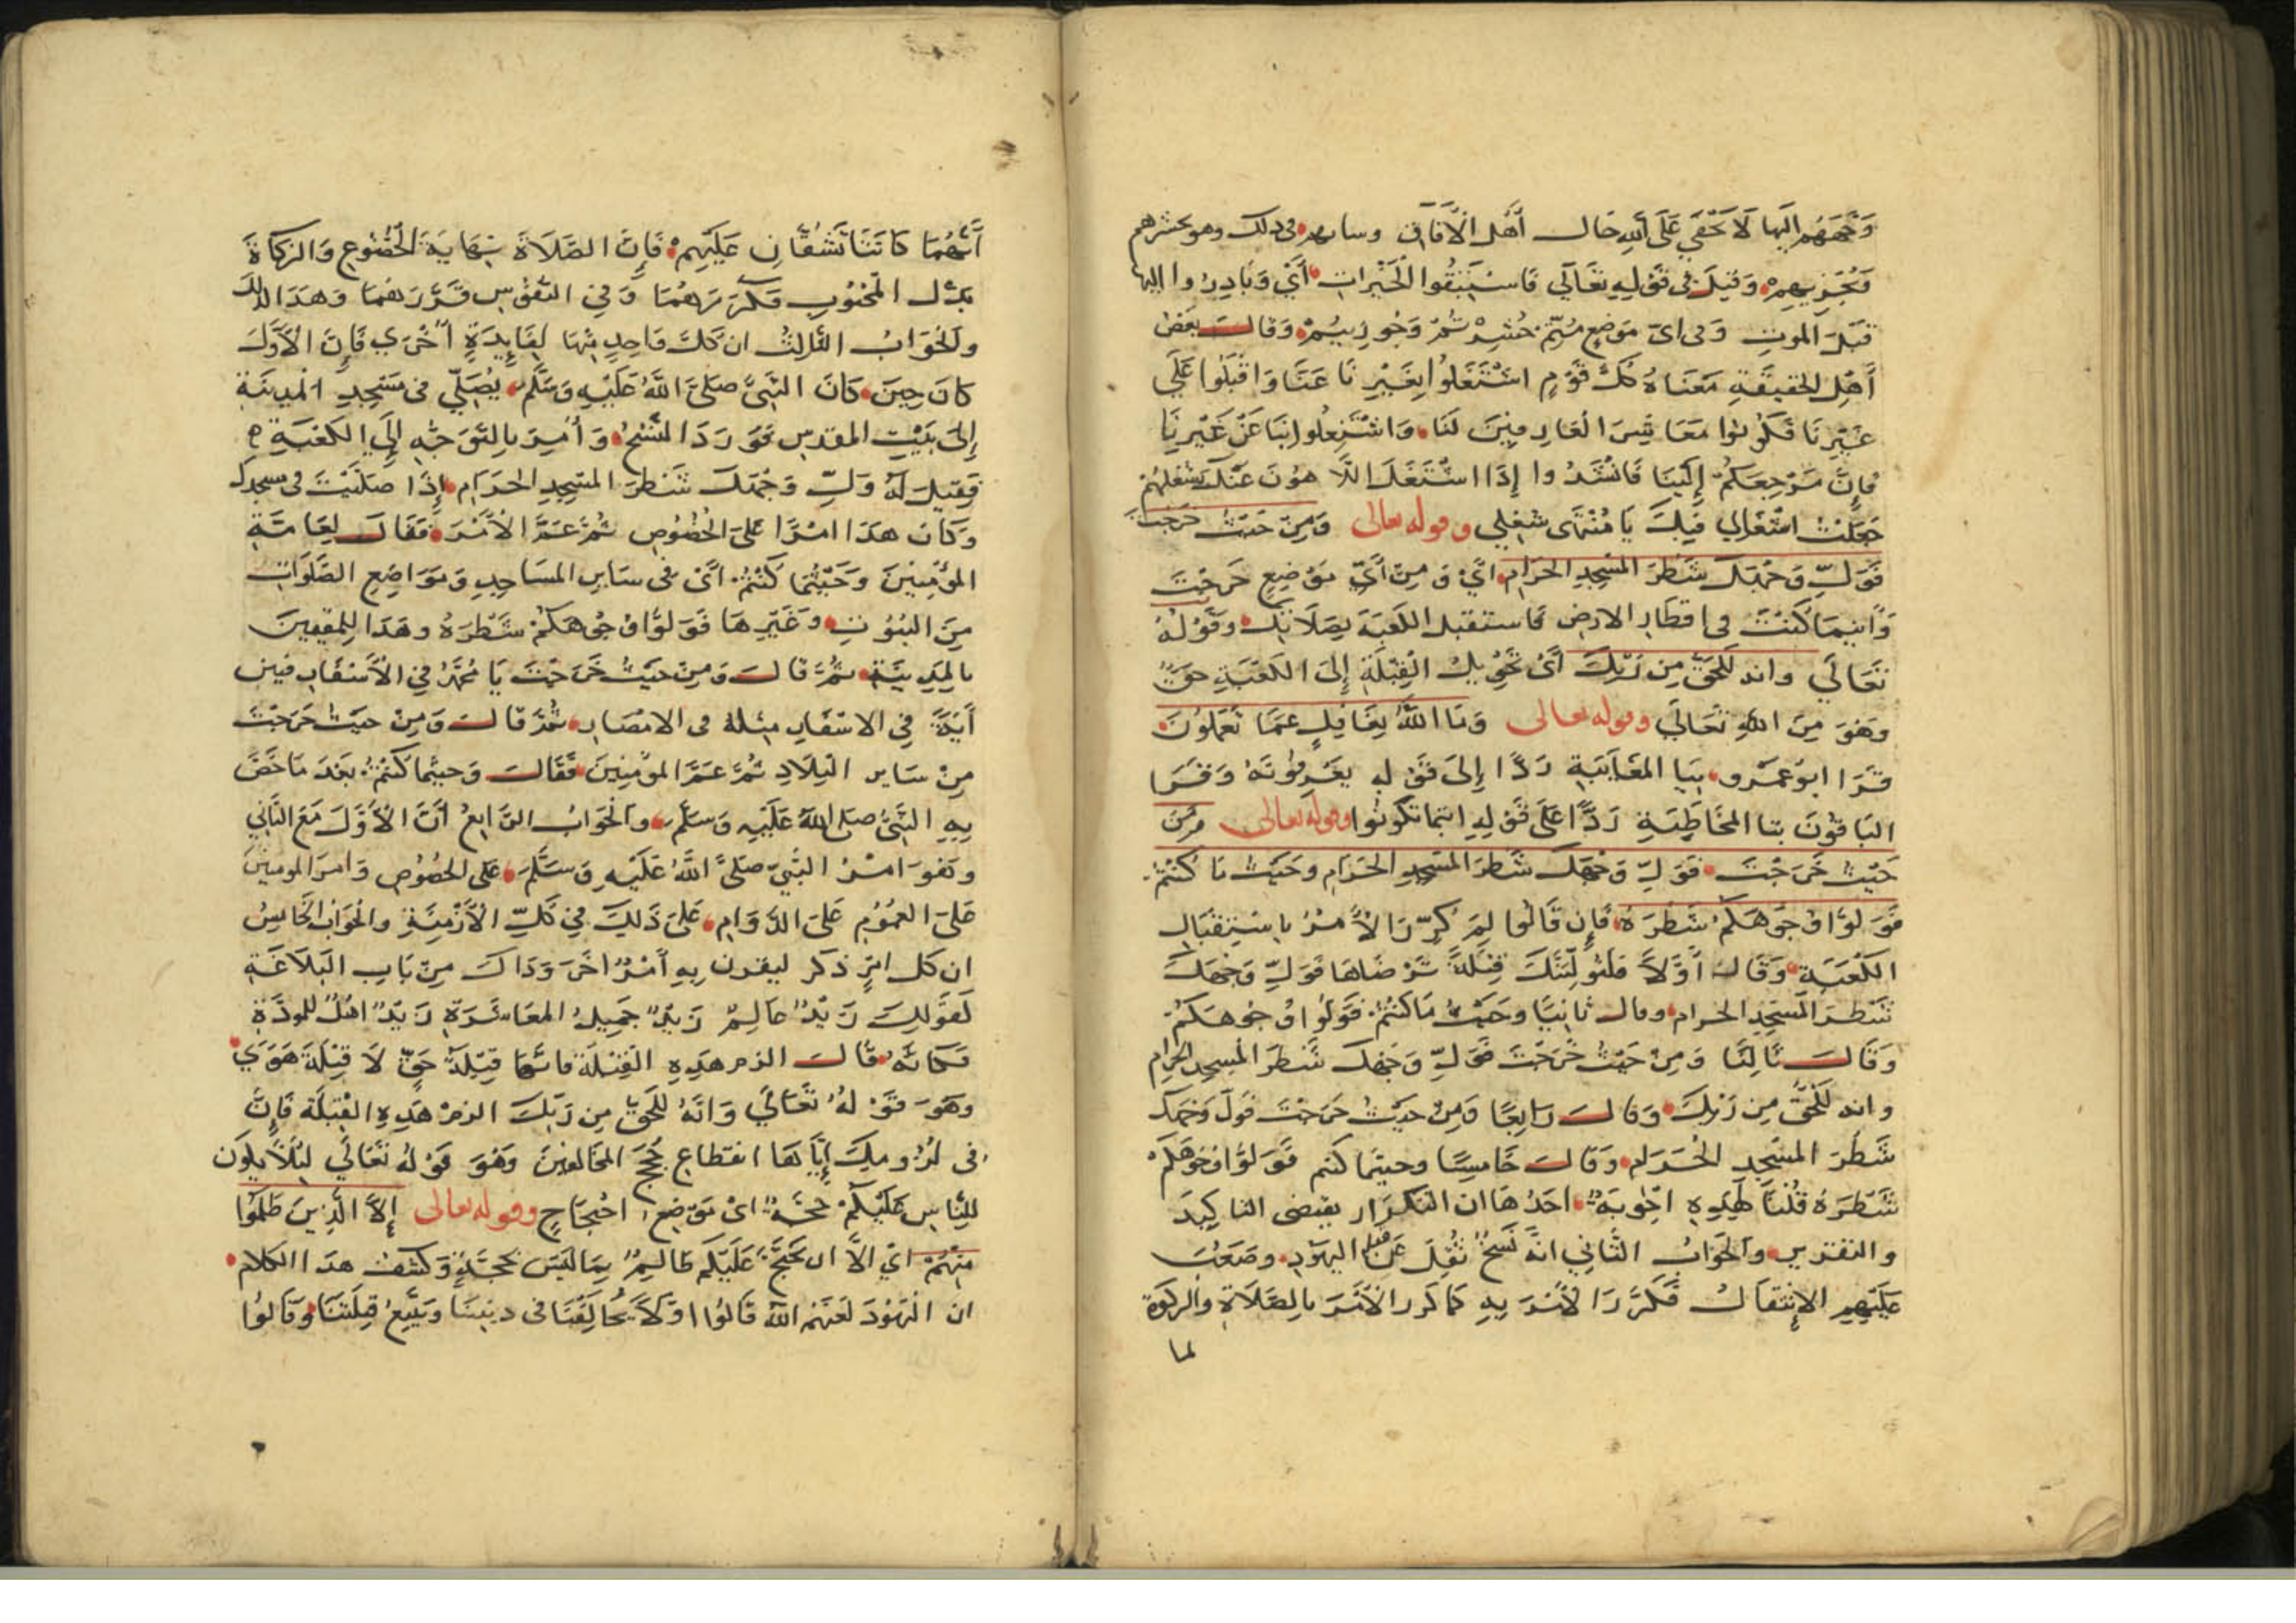 وَجَّهَهُم اليها لَا يَخْفَي عَلَي الله حَال أَهْل الْآفَاق وسايرهم في ذلك وهو يحشرهم
وَيُجْزِيهِمْ وَقِيلَ فى قَوْلِهِ تَعَالَي فَاسْتَبِقُوا الْخَيْرَاتِ أَيْ وَبَادِرُوا اليها
قَبْلَ الموتِ وَفى اىّ مَوَضِعٍ مُتُّمْ حُشِرْتُمْ وَجُوزِيتُمْ وَقَالَ بَعْضُ
أَهْلِ الحقيقَةِ مَعْنَاهُ كُلُّ قَوْمٍ اشْتَغَلُوا بِغَيْرِنَا عَنَّا وَاقْبَلُوا عَلَي
غَيْرِنَا فَكُونُوا مَعَاشِرَ الْعَارِفِينَ لَنَا وَاشْتَغِلُوا بِنَا عَنْ غَيْرِنَا
فَإِنَّ مَرْجِعَكُمْ إِلَيْنَا فَانْشَدُوا إِذَا اشْتَغَلَ اللَّاهُونَ عَنْكَ بِشُغْلِهِمْ
جَعَلْتُ اشْتِغَالِي فِيكَ يَا مُنْتَهَى شغلِي وقوله تعالى وَمِنْ حَيْثُ خَرَجْتَ
فَوَلِّ وَجْهَكَ شَطْرَ الْمَسْجِدِ الحَرَامِ اىْ وَمِنْ أَيِّ مَوْضِعٍ خَرَجْتَ
وَأَيْنَمَا كُنْتَ فى اقطَارِ الارضِ فَاستقبل الكَعْبَةَ بِصَلَاتِكَ وَقَوْلُهُ
تَعَالَي وانه لَلْحَقُّ مِن رَّبِّكَ أَىْ تَحْوِيلُ الْقِبْلَةِ إِلَى الكَعْبَةِ حَقٌّ
وَهُوَ مِنَ اللهِ تَعَالَي وقوله تعالى وَمَا اللَّهُ بِغَافِلٍ عمَّا تَعْمَلُونَ
قَرَا ابوُ عَمْرٍو بِيَا المغَايَبَةِ رَدًّا إِلَى قَوْلِهِ يَعْرِفُونَهُ وَقَرَا
البَاقُونَ بتا المخَاطَبَةِ رَدًّا عَلَى قَوْلِهِ اينما تكُونُوا وقوله تعالى ومِنْ
حَيْثُ خَرَجْتَ فَوَلِّ وَجْهَكَ شَطْرَ الْمَسْجِدِ الحَرَامِ وحَيْثُ مَا كُنْتُمْ
فَوَلُّوا وُجُوهَكُمْ شَطْرَهُ فَإِن قَالُوا لِمَ كُرِّرَ الْأَمْرُ بِاسْتِقْبَالِ
الكَعْبَةِ وَقَالَ أَوَّلًا فَلَنُوَلِّيَنَّكَ قِبْلَةً تَرْضَاهَا فَوَلِّ وَجْهَكَ
شَطْرَ الْمَسْجِدِ الحرام وقال ثانِيًا وحَيْثُ مَا كنتُمْ فَوَلُّوا وُجُوهَكُمْ
وَقَالَ ثَالِثًا وَمِنْ حَيْثُ خَرَجْتَ فَوَلِّ وَجْهَكَ شَطْرَ الْمَسْجِدِ الحرامِ
وانه لَلْحَقُّ مِن رَّبِّكَ وَقَالَ رَابِعًا وَمِنْ حَيْثُ خَرَجْتَ فَوَلِّ وَجْهَكَ
شَطْرَ المَسْجِدِ الْحَرَامِ وَقَالَ خَامِسًا وحيثما كنتم فَوَلُّوا وُجُوهَكُمْ
شَطْرَهُ قُلْنَا لِهَذِهِ اجْوِبَةٌ احَدُهَا ان التكرَار يقتضى التاكِيدَ
والتقرير والجَوَابُ الثَّانِي انَّهُ نَسْخٌ نُقِلَ عَنْ قبلة اليهَوُدِ وصَعُبَ
عَلَيْهِمِ الإِنْتِقَالُ فَكَرَّرَ الْأَمْرَ بِهِ كَمَا كَرر الْأَمْرَ بِالصَّلَاةِ والزكوة
لما
أَنَّهُمَا كَانَتَا تَشُقَّانِ عَلَيْهِمْ فَإِنَّ الصَّلَاةَ نِهَايَةُ الخُضُوعِ وَالزكَاةَ
بَذْلُ الْمَحْبُوبِ فَكَرَّرَهُمَا وَفِي النفُوُسِ قَرَّرَهُمَا وَهَذَا كذلكَ
والجَوَابُ الثَّالِثُ ان كُلَّ وَاحِدٍ مِنْهَا لِفَايِدَةٍ أُخْرَي فَإِنَّ الْأَوَّلَ
كانَ حِينَ كَانَ النَّبِىُّ صَلَى اللَّهُ عَلَيْهِ وَسَلَّمَ يُصَلِّي فى مَسْجِدِ الْمَدِينَةِ
إِلَى بَيْتِ المقدِسِ فَوَرَدَ النَّسْخُ وَأُمِرَ بِالتَّوَجُّهِ إِلَي الكَعْبَةِ
فَقِيلَ لَهُ وَلِّ وَجْهَكَ شَطْرَ المَسْجِدِ الحَرَامِ إِذَا صَلَّيْتَ في مسجدك
وَكَانَ هَذَا امْرًا عَلَى الْخُصُوصِ ثُمَّ عَمَّ الْأَمْرَ فَقَالَ لِعَامَّةِ
المؤمِنِينَ وَحَيْثُمَا كُنْتُمْ اىْ فى سَايِرِ المَسَاجِدِ وَمَوَاضِعِ الصَّلَوَاتِ
مِنَ البُيُوتِ وَغَيْرِهَا فَوَلُّوا وُجُوهَكُمْ شَطْرَهُ وهَذَا لِلمقيمينَ
بالمَدِينَةِ ثُمَّ قَالَ وَمِنْ حَيْثُ خَرَجْتَ يَا مُحَمَّدُ فِي الْأَسْفَارِ فبين
أَنَّهُ فِي الاسْفَارِ مثلهُ فى الامْصَارِ ثُمَّ قَالَ وَمِنْ حيَثُ خَرَجْتَ
مِنْ سَايِر الْبِلَادِ ثُمَّ عَمَّ المؤمِنِينَ فَقَالَ وَحيثُما كُنتُمْ بَعْدَ مَا خَصَّ
بِهِ النَّبِيَّ صلى اللهُ عَلَيْهِ وَسَلَّمَ والجَوَابُ الرَّابِعُ أَنَّ الْأَوَّلَ مَعَ الثَّانِي
وَهُوَ امْرُ النَّبِيِّ صَلَّى اللَّهُ عَلَيْهِ وَسَلَّمَ على الخصُوُصِ وَامرَ المومنينَ
عَلَى العمُوُمِ عَلَى الدَّوَامِ عَلَى ذَلِكَ فى كُلِّ الْأَزْمِنَةِ والجَوَاب الخَامِسُ
ان كل امْرٍ ذكر ليقرن بِهِ أَمْرٌ اخَرَ وَذَاكَ مِنْ بَابِ البَلَاغَةِ
كَقَوْلِكَ زَيْدٌ عَالِمٌ زَيْدٌ جَمِيلُ المعَاشَرَةِ زَيْدٌ اهْلٌ للمودَّةِ
فَكَانَّهُ قَالَ الزم هَذِهِ الْقِبْلَةَ فانَّهَا قِبْلَةُ حَقٍّ لَا قِبْلَةُ هَوَىً
وَهُوَ قَوْلُهُ تَعَالَي وَانَّهُ لَلْحَقُّ مِن رَبِّكَ الزمْ هَذِهِ الْقِبْلَةَ فَإِنَّ
فى لُزُومِكَ إِيَّاهَا انقطاع حُجَجِ المخَالفِينَ وَهُوَ قَوْلُهُ تَعَالَي لِئَلَّا يَكُونَ
لِلنَّاسِ عَلَيْكُمْ حُجَّةٌ اىْ مَوْضِعُ احْتِجَاجٍ وقوله تعالى إِلَّا الَّذِينَ ظَلَمُوا
مِنْهُمْ اىْ الَّا ان يَحْتَجَّ عَلَيْكُم ظَالِمٌ بِمَا لَيْسَ بحُجَّةٍ وَكَشْفُ هذا الكَلام
ان الْيَهُودَ لَعَنَهُم اللَّهُ قَالُوا اوَّلًا يُخَالِفُنَا فى دينِنَا وَيَتَّبِعُ قِبْلَتَنَا وَقَالُوا